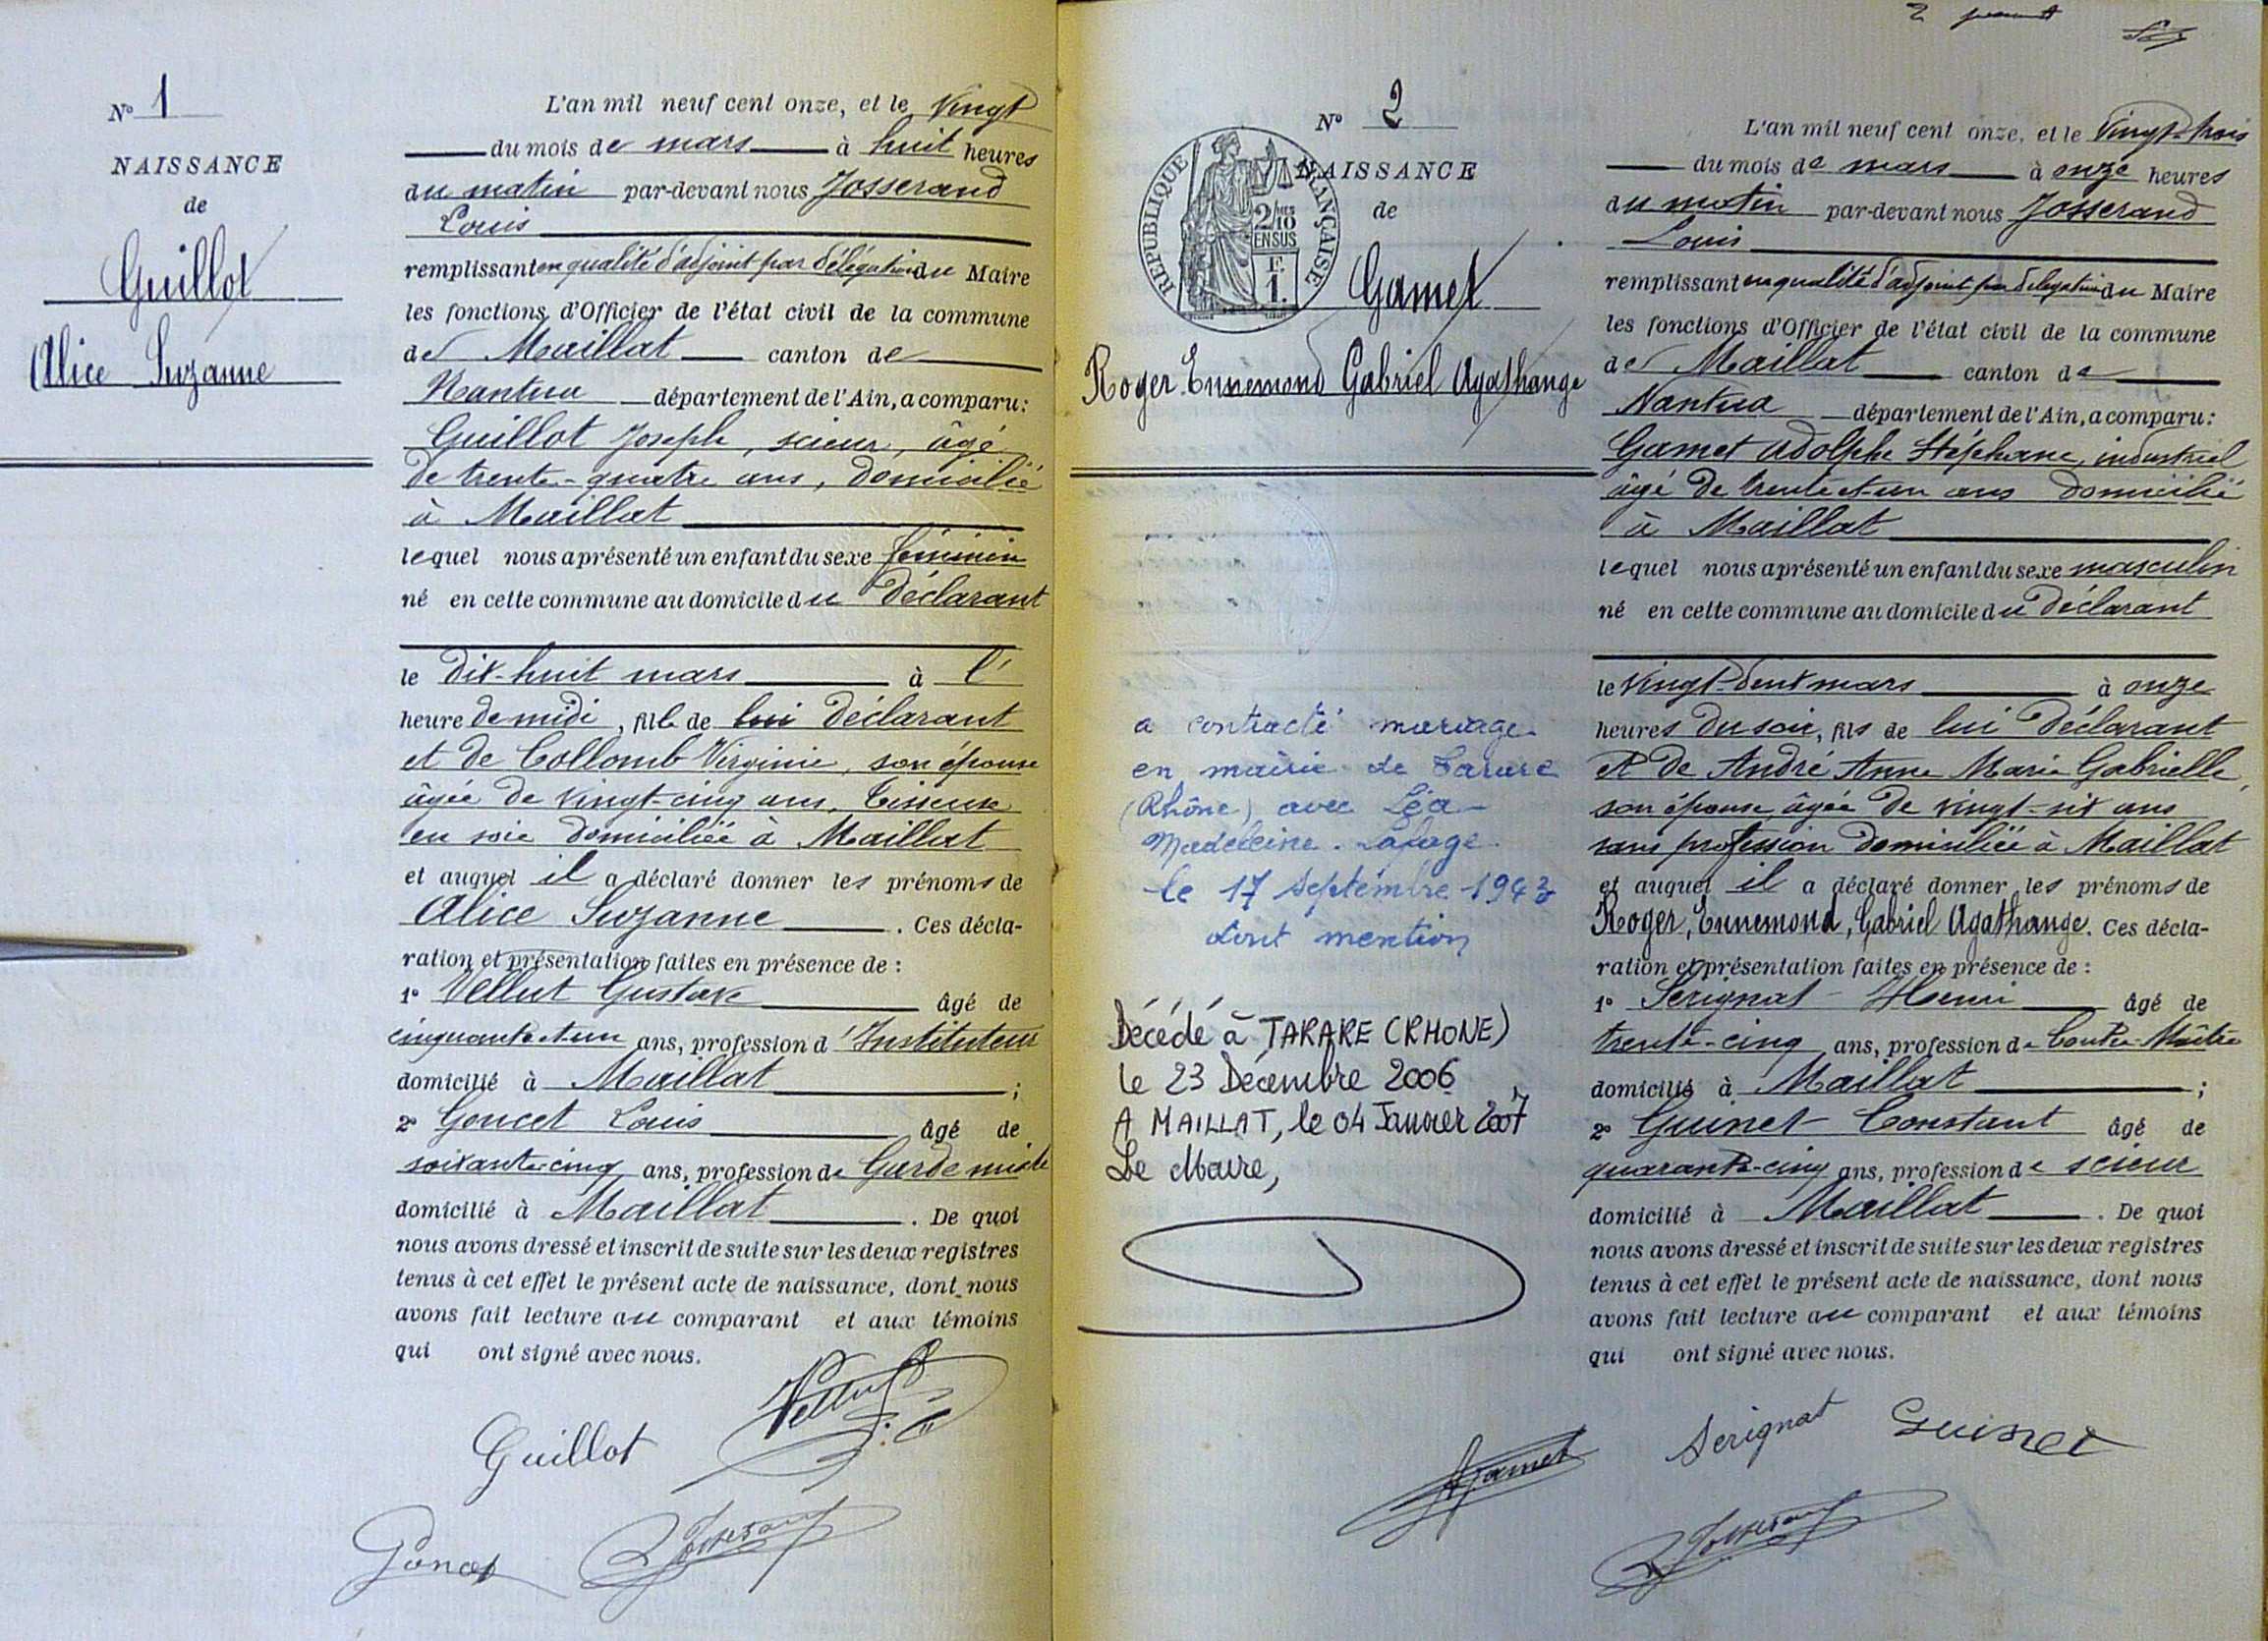 N° 1
NAISSANCE
de
Guillot
Alice Suzanne
L'an mil neuf cent onze, et le Vingt
du mois de mars à huit heures
du matin par-devant nous Josserand
Louis
remplissant en qualité d'adjoint par délégation du Maire
les fonctions d'Officier de l'état civil de la commune
de Maillat canton de
Nantua département de l'Ain, a comparu:
Guillot Joseph, scieur, âgé
de trente-quatre ans, domicilié
à Maillat
lequel nous a présenté un enfant du sexe féminin
né en cette commune au domicile du déclarant
le dix-huit mars à l'
heure de midi, fille de lui déclarant
et de Collomb Virginie, son épouse
âgée de vingt-cinq ans, tisseuse
en soie domiciliée à Maillat
et auquel il a déclaré donner les prénoms de
Alice Suzanne . Ces décla-
ration et présentation faites en présence de :
1° Vellut Gustave âgé de
cinquante et un ans, profession d'Instituteur
domicilié à Maillat ;
2° Goncet Louis âgé de
soixante-cinq ans, profession de Garde
domicilié à Maillat . De quoi
nous avons dressé et inscrit de suite sur les deux registres
tenus à cet effet le présent acte de naissance, dont nous
avons fait lecture au comparant et aux témoins
qui ont signé avec nous.
Vellut
Guillot
Goncet Josserand
2
N° 2
NAISSANCE
de
REPUBLIQUE FRANÇAISE
2/10 MES
EN SUS
F.
1.
Gamet
Roger Ennemond Gabriel Agathange
a contracté mariage
en mairie de Tarare
(Rhône) avec Léa
Madeleine Lafage
le 17 Septembre 1943
dont mention
Décédé à TARARE (RHONE)
le 23 Décembre 2006
A MAILLAT, le 04 Janvier 2007
Le Maire,
L'an mil neuf cent onze, et le Vingt-trois
du mois de mars à onze heures
du matin par-devant nous Josserand
Louis
remplissant en qualité d'adjoint par délégation du Maire
les fonctions d'Officier de l'état civil de la commune
de Maillat canton de
Nantua département de l'Ain, a comparu:
Gamet Adolphe Stéphane, industriel
âgé de trente et un ans domicilié
à Maillat
lequel nous a présenté un enfant du sexe masculin
né en cette commune au domicile du déclarant
le Vingt-deux mars à onze
heures du soir, fils de lui déclarant
et de André Anne Marie Gabrielle,
son épouse, âgée de vingt-six ans
sans profession domiciliée à Maillat
et auquel il a déclaré donner les prénoms de
Roger, Ennemond, Gabriel Agathange. Ces décla-
ration et présentation faites en présence de :
1° Serignat Henri âgé de
trente-cinq ans, profession de Contre-Maître
domicilié à Maillat ;
2° Guinet Constant âgé de
quarante-cinq ans, profession de scieur
domicilié à Maillat . De quoi
nous avons dressé et inscrit de suite sur les deux registres
tenus à cet effet le présent acte de naissance, dont nous
avons fait lecture au comparant et aux témoins
qui ont signé avec nous.
Gamet Serignat Guinet
Josserand